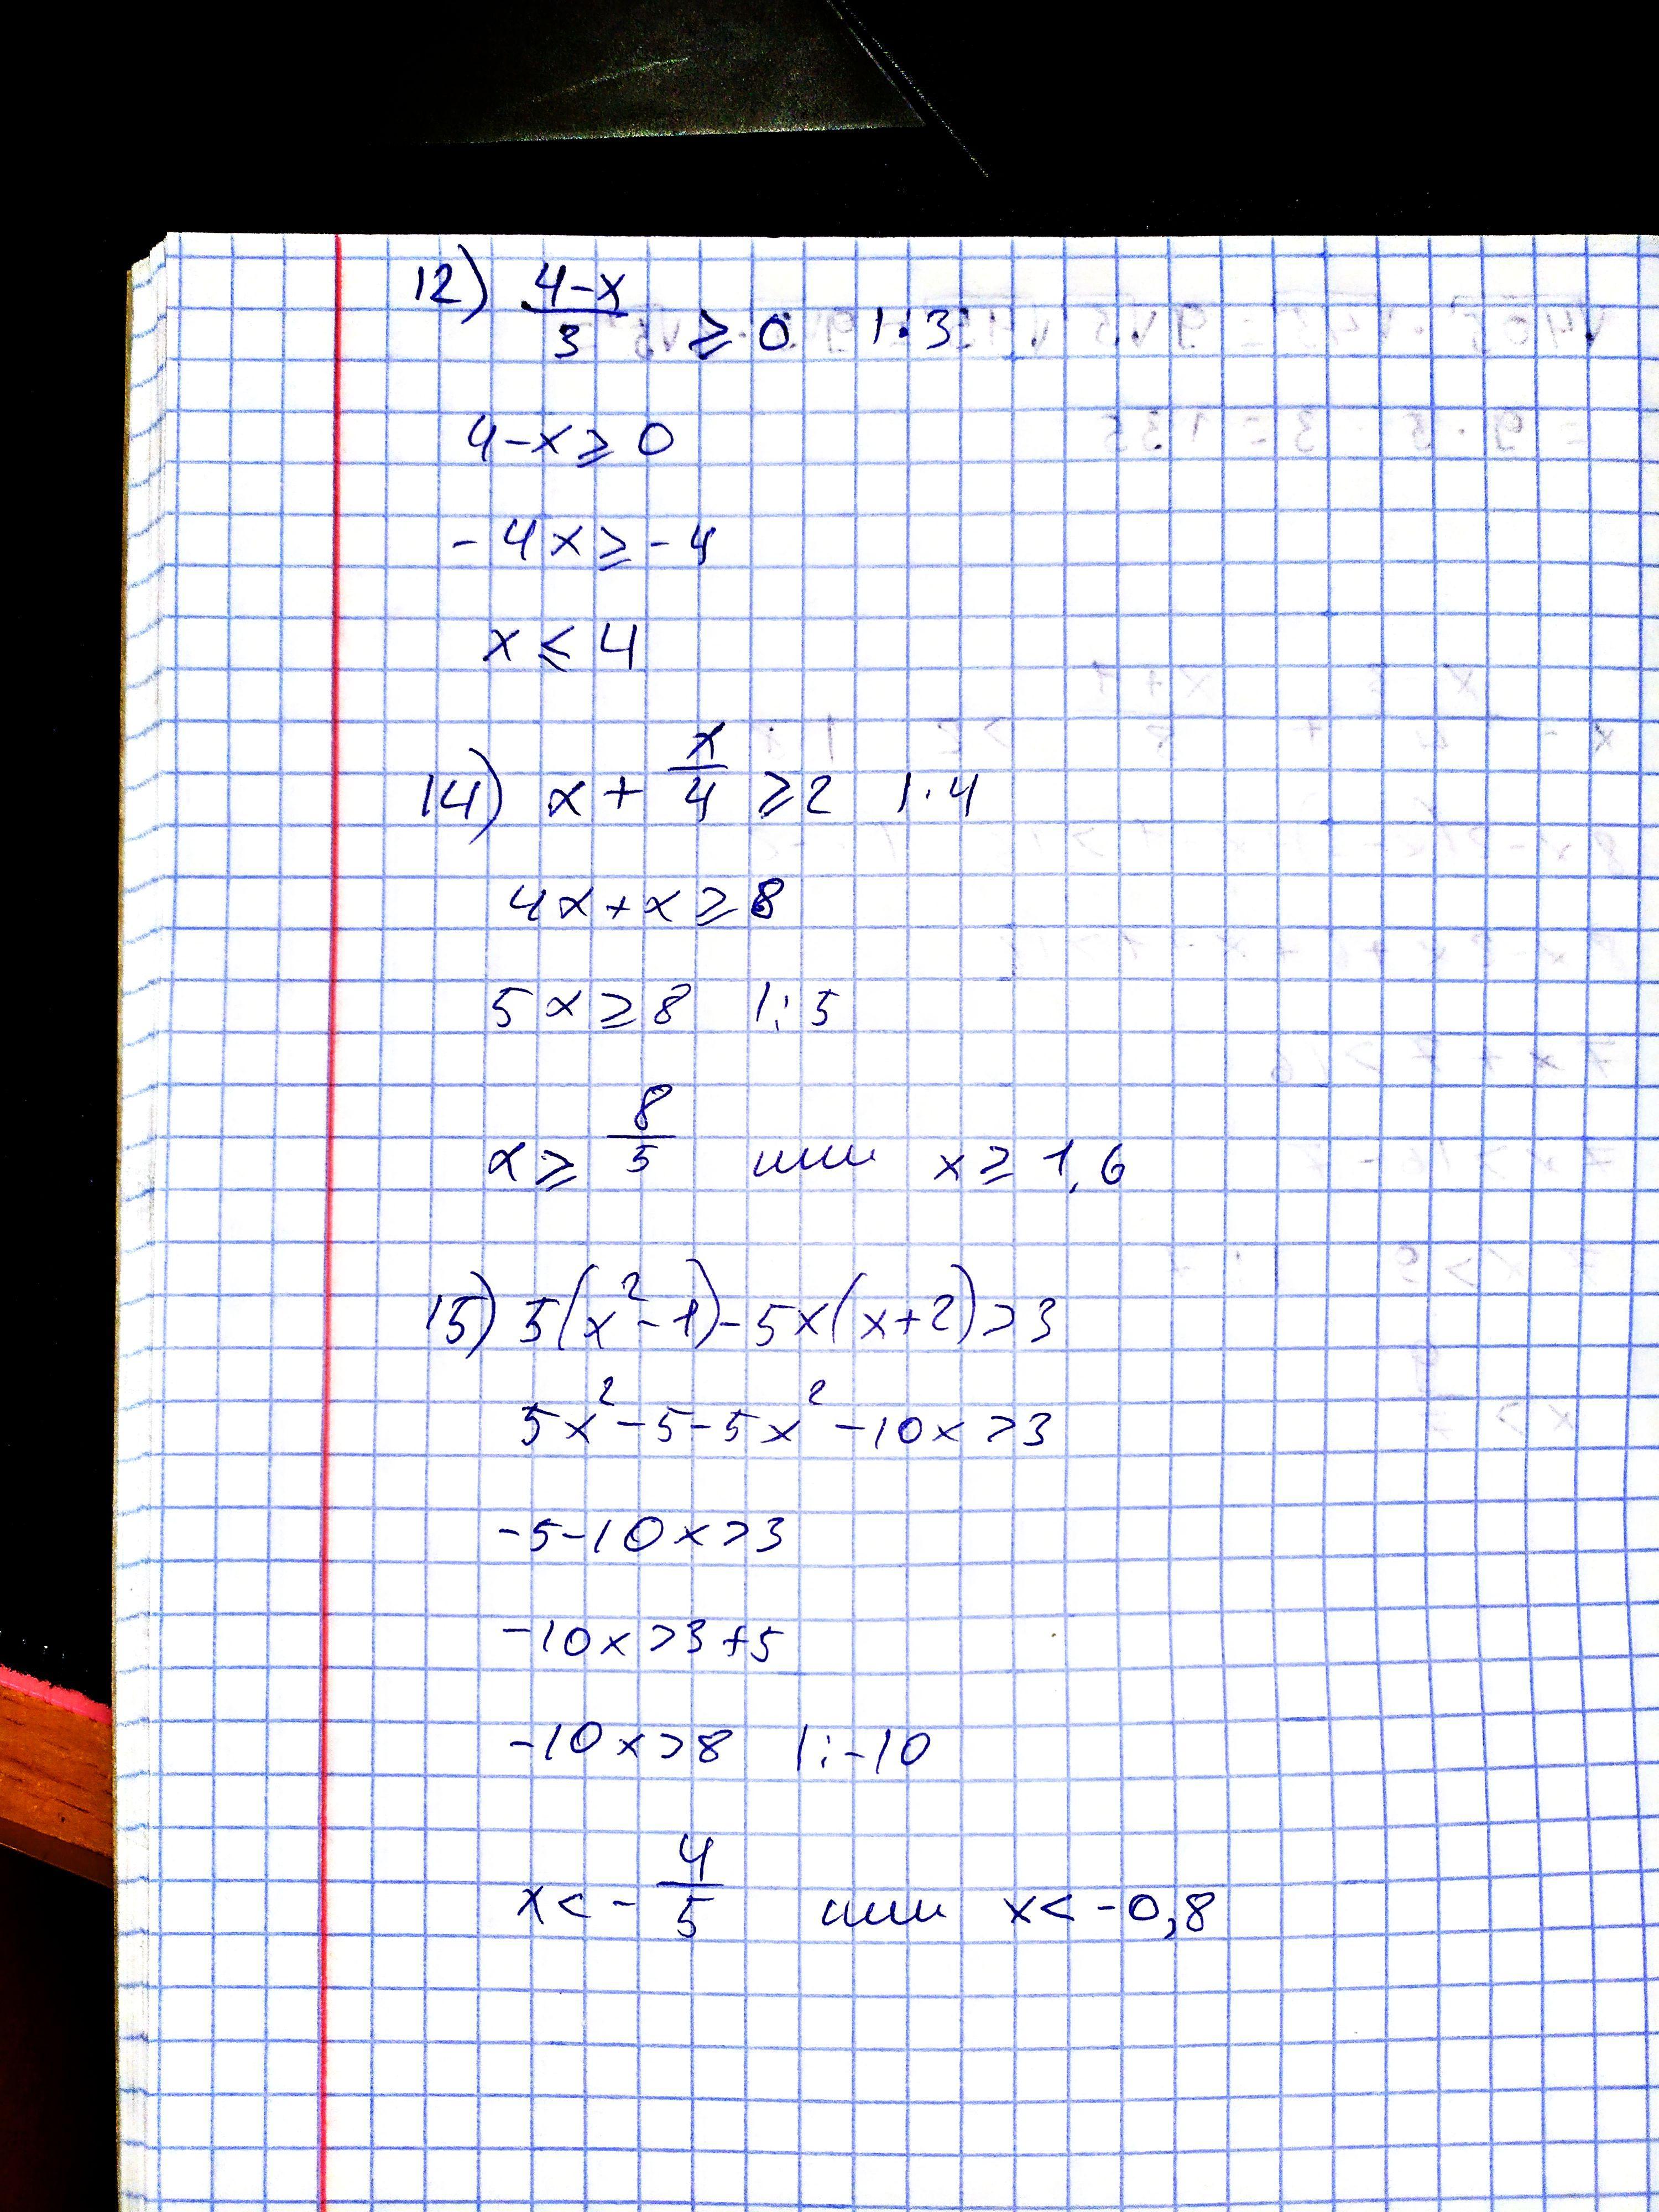 12) (4-x)/3 ⩾ 0 |:3
4-x ⩾ 0
-4x ⩾ -4
x ⩽ 4
14) x + x/4 ⩾ 2 |·4
4x+x ⩾ 8
5x ⩾ 8 |:5
x ⩾ 8/5 или x ⩾ 1,6
15) 5(x²-1)-5x(x+2)>3
5x²-5-5x²-10x>3
-5-10x>3
-10x>3+5
-10x>8 |:-10
x< -4/5 или x< -0,8